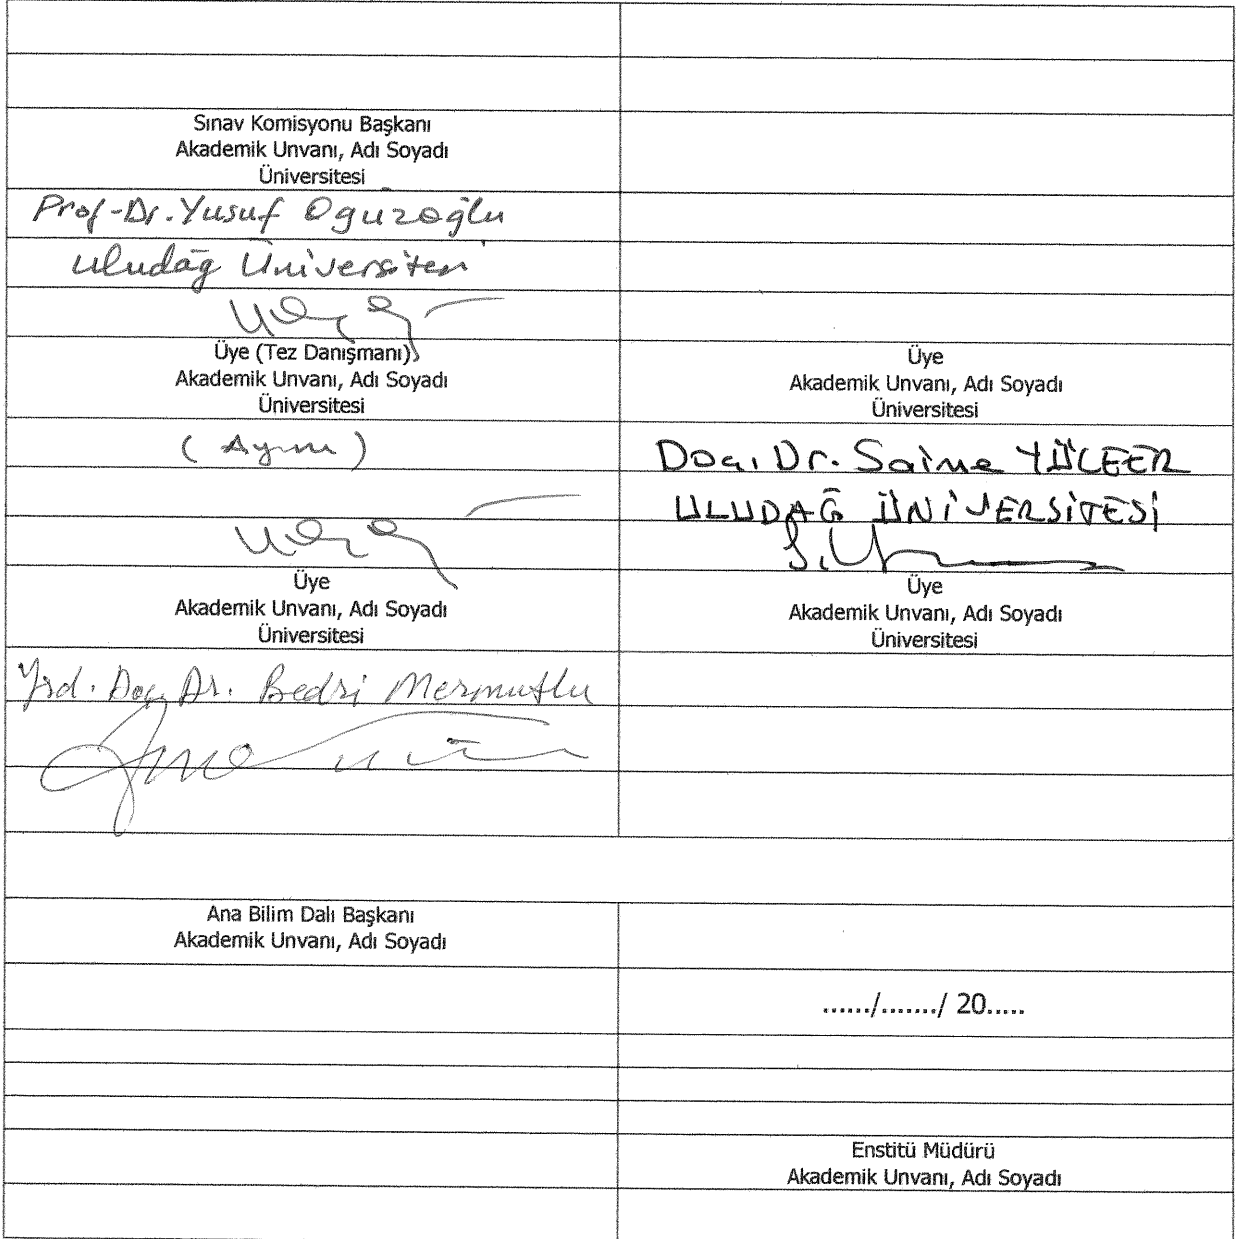 Sınav Komisyonu Başkanı
Akademik Unvanı, Adı Soyadı
Üniversitesi
Prof-Dr. Yusuf Oğuzoğlu
Uludağ Üniversitesi
Üye (Tez Danışmanı)
Akademik Unvanı, Adı Soyadı
Üniversitesi
(Aynı)
Üye
Akademik Unvanı, Adı Soyadı
Üniversitesi
Doç. Dr. Saime YÜCEER
ULUDAĞ ÜNİVERSİTESİ
Üye
Akademik Unvanı, Adı Soyadı
Üniversitesi
Yrd. Doç. Dr. Bedri Mermutlu
Üye
Akademik Unvanı, Adı Soyadı
Üniversitesi
Ana Bilim Dalı Başkanı
Akademik Unvanı, Adı Soyadı
....../......./ 20.....
Enstitü Müdürü
Akademik Unvanı, Adı Soyadı